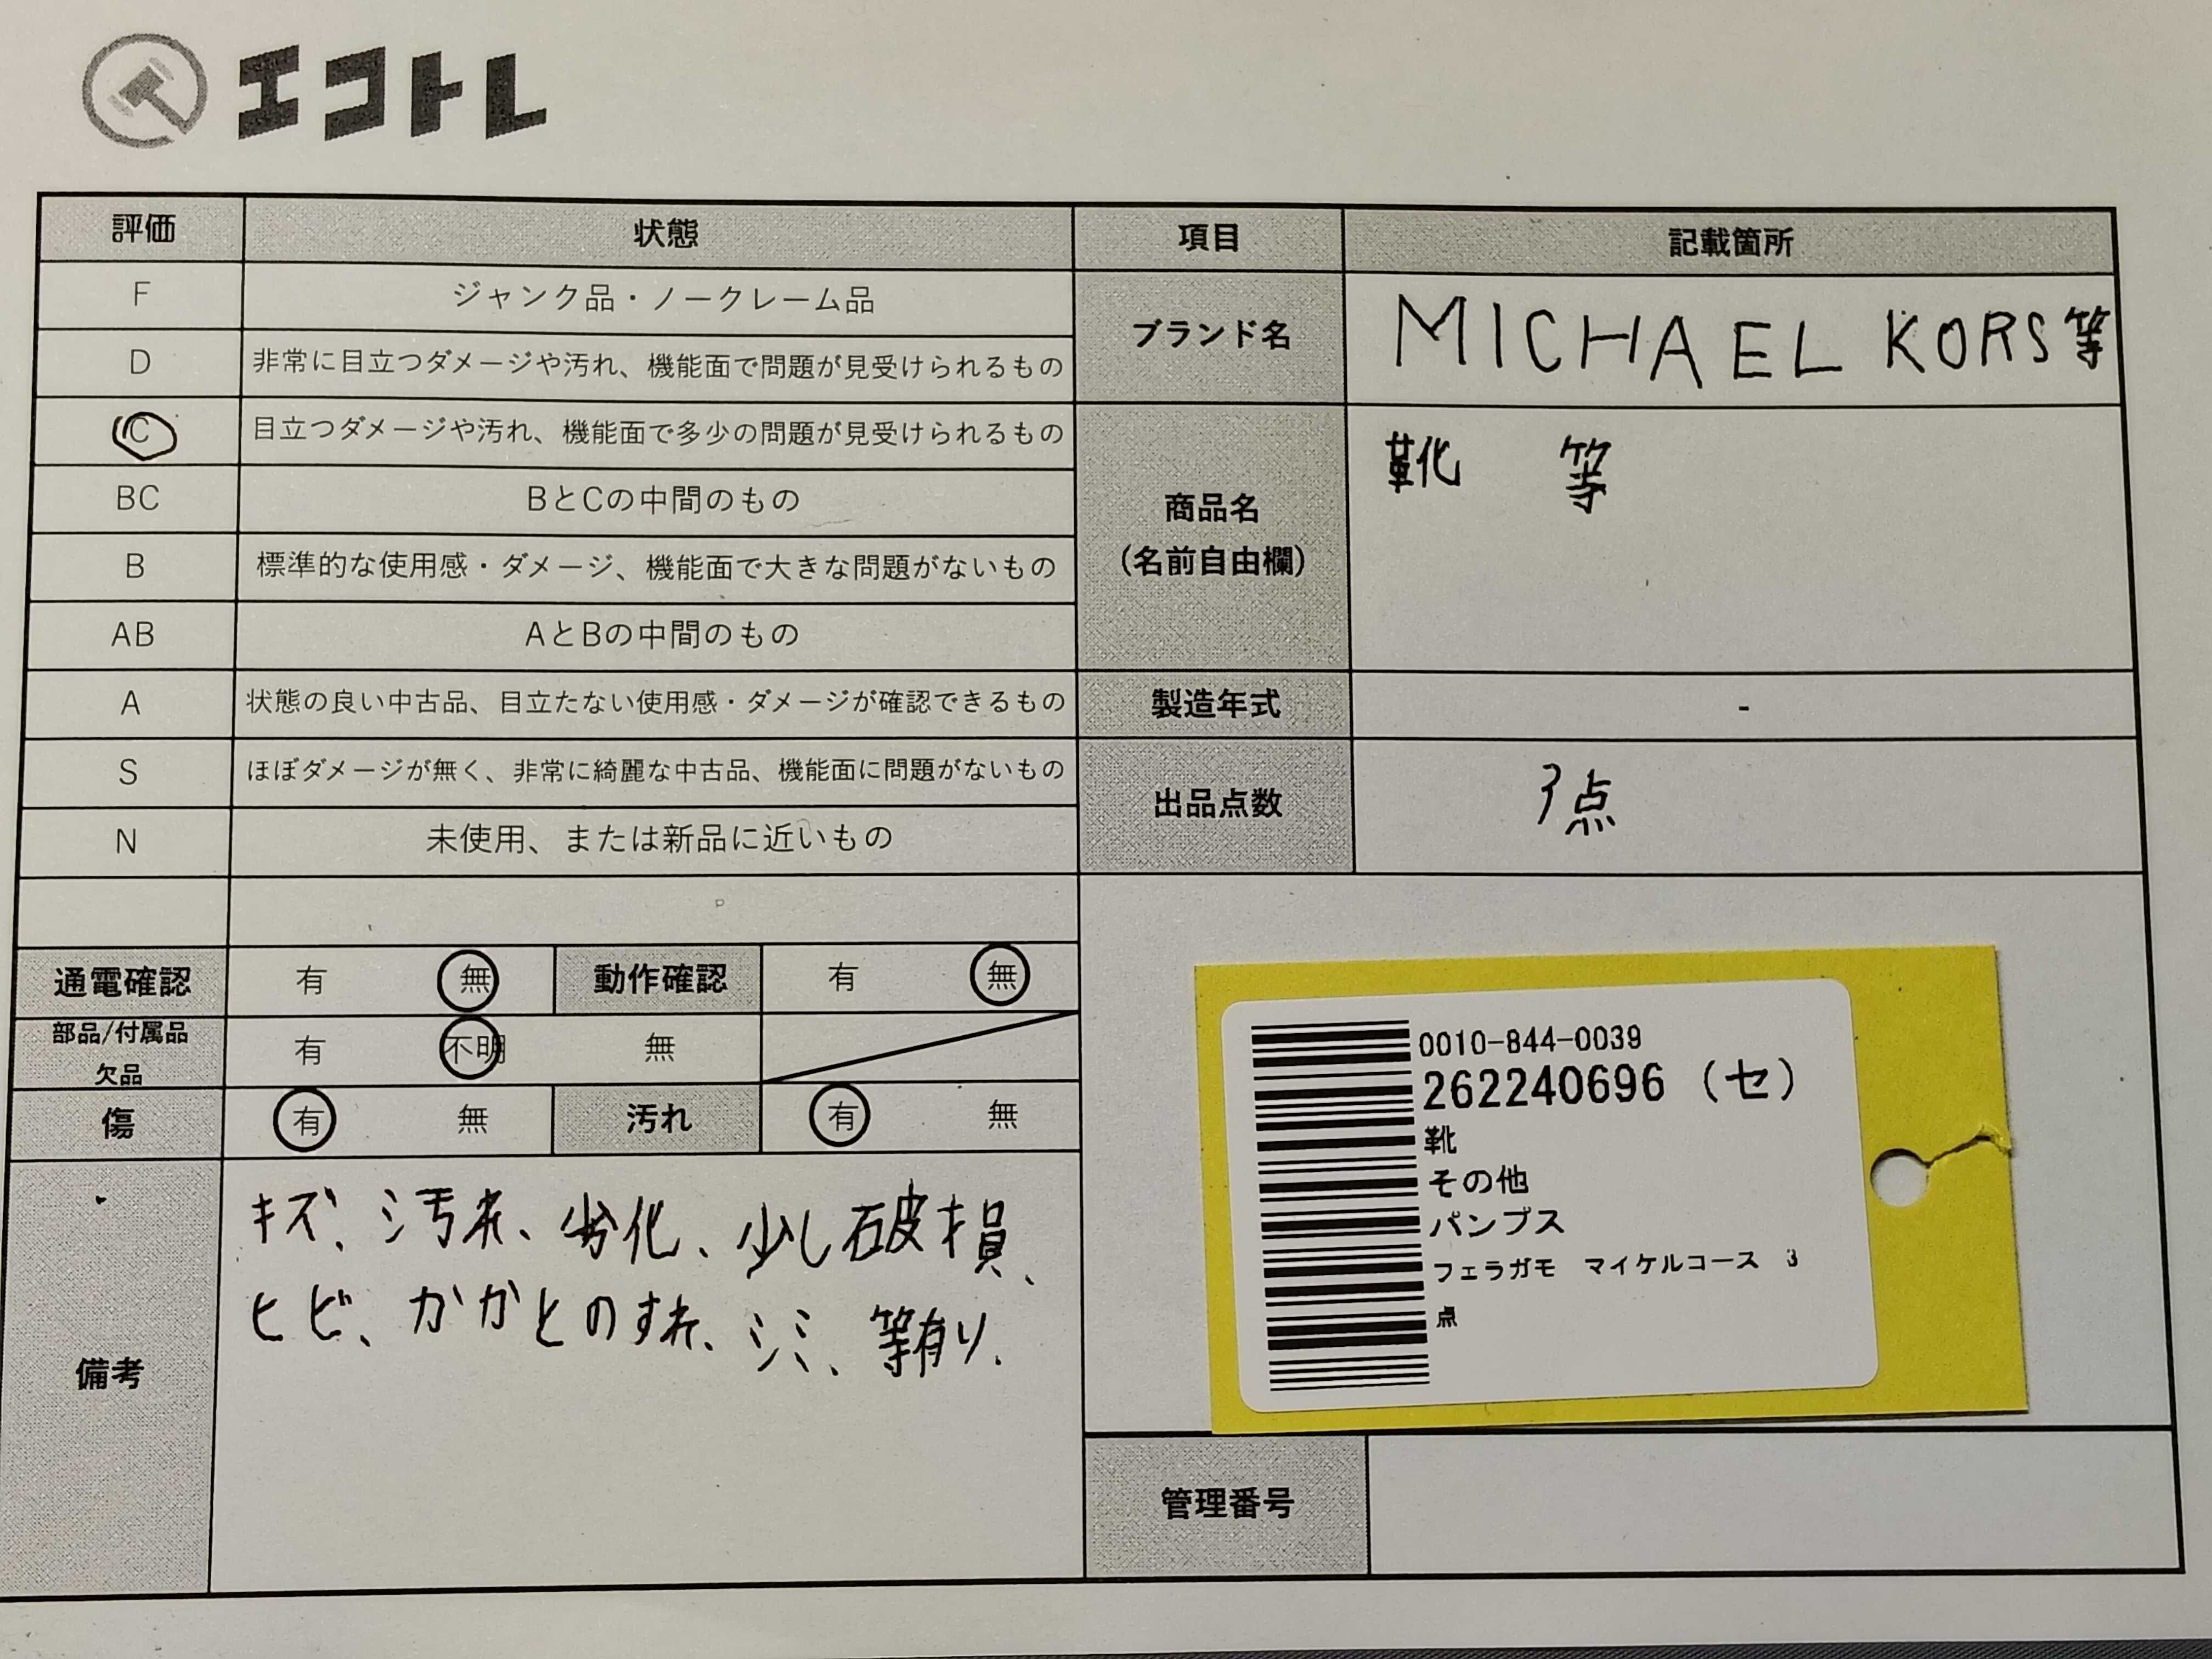 エコトレ
評価 状態 項目 記載箇所
F ジャンク品・ノークレーム品
D 非常に目立つダメージや汚れ、機能面で問題が見受けられるもの
C 目立つダメージや汚れ、機能面で多少の問題が見受けられるもの
BC BとCの中間のもの
B 標準的な使用感・ダメージ、機能面で大きな問題がないもの
AB AとBの中間のもの
A 状態の良い中古品、目立たない使用感・ダメージが確認できるもの
S ほぼダメージが無く、非常に綺麗な中古品、機能面に問題がないもの
N 未使用、または新品に近いもの
ブランド名 MICHAEL KORS等
商品名
(名前自由欄)
靴 等
製造年式 -
出品点数 3点
通電確認 有 無 動作確認 有 無
部品/付属品
欠品
有 不明 無
傷 有 無 汚れ 有 無
備考
キズ、汚れ、劣化、少し破損、
ヒビ、かかとのすれ、シミ、等有り.
0010-844-0039
262240696 (セ)
靴
その他
パンプス
フェラガモ マイケルコース 3
点
管理番号